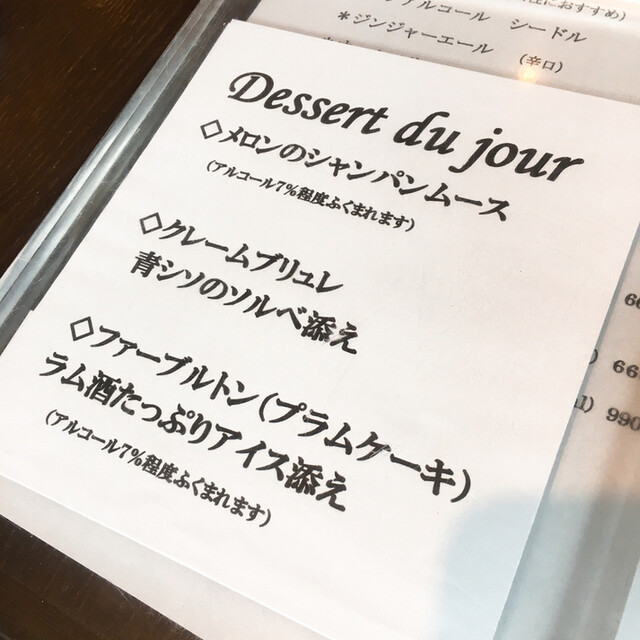 アルコール シードル
におすすめ)
*ジンジャーエール (辛口)
Dessert du jour
◇メロンのシャンパンムース
(アルコール7%程度ふくまれます)
◇クレームブリュレ
青シソのソルベ添え
◇ファーブルトン(プラムケーキ)
ラム酒たっぷりアイス添え
(アルコール7%程度ふくまれます)
66
) 66
) 990